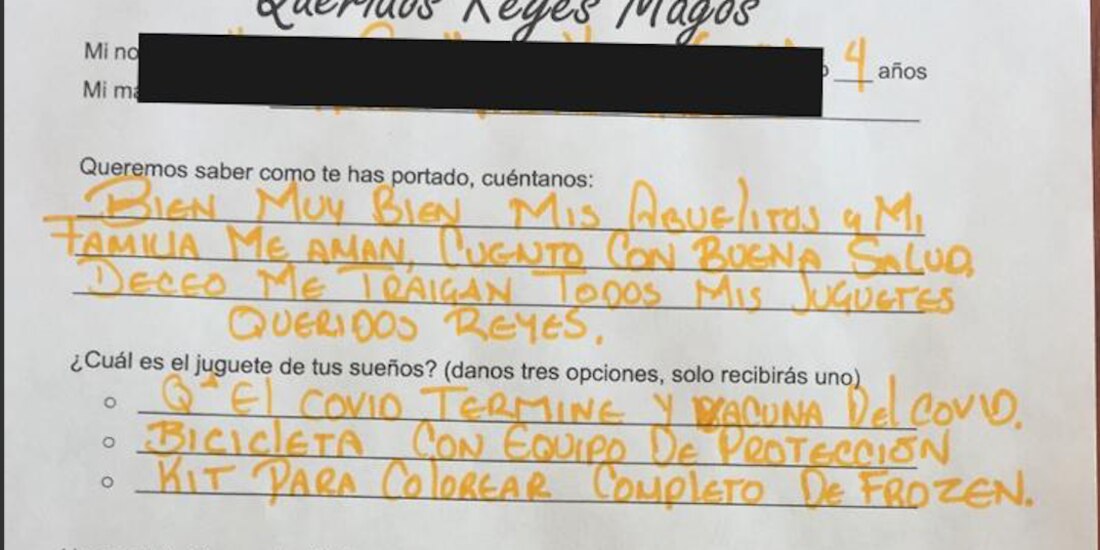 Queridos Reyes Magos
Mi no
4 años
Mi ma
Queremos saber como te has portado, cuéntanos:
BIEN MUY BIEN MIS ABUELITOS y MI
FAMILIA ME AMAN, CUENTO CON BUENA SALUD,
DECEO ME TRAIGAN TODOS MIS JUGUETES
QUERIDOS REYES.
¿Cuál es el juguete de tus sueños? (danos tres opciones, solo recibirás uno)
Qᵃ El COVID TERMINE Y VACUNA Del COVID.
BICICLETA CON EQUIPO DE PROTECCIÓN
KIT PARA COLOREAR COMPLETO DE FROZEN.